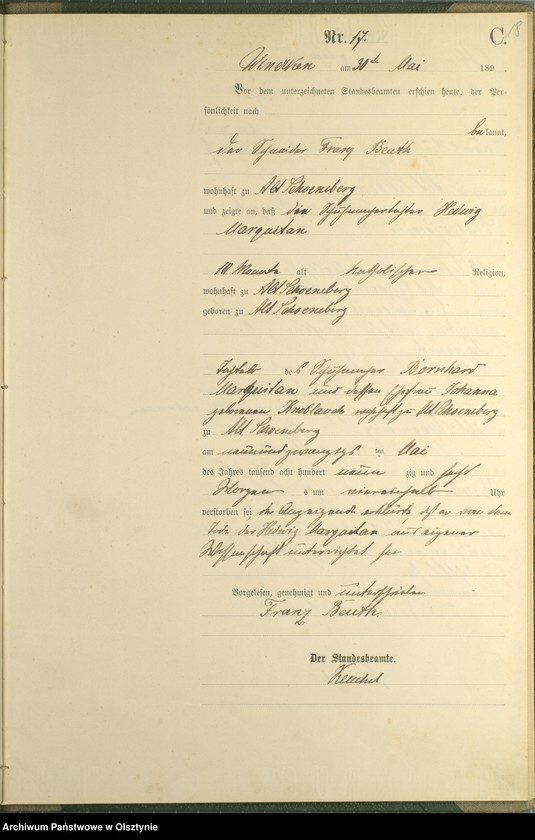 Nr. 17. C. 18
am 30ten Mai 189 .
Vor dem unterzeichneten Standesbeamten erschien heute, der Per-
sönlichkeit nach
be kannt,
der Schneider Franz Beuth
wohnhaft zu Alt Schoeneberg
und zeigte an, daß die Schuhmachertochter Hedwig
Marquitan
10 Monate alt katholischer Religion,
wohnhaft zu Alt Schoeneberg
geboren zu Alt Schoeneberg
Tochter des Schuhmacher Bernhard
Marquitan und dessen Ehefrau Johanna
geborenen Knoblauch wohnhaft zu Alt Schoeneberg
zu Alt Schoeneberg
am neunundzwanzigsten Mai
des Jahres tausend acht hundert neun zig und sechs
Morgens um viereinhalb Uhr
verstorben sei der Anzeigende erklärte daß er von dem
Tode der Hedwig Marquitan aus eigener
Wissenschaft unterrichtet sei
Vorgelesen, genehmigt und unterschrieben
Franz Beuth.
Der Standesbeamte.
Archiwum Państwowe w Olsztynie